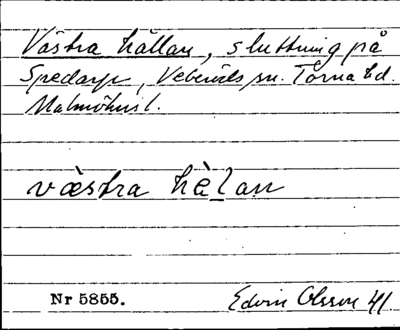 Västra hällan, sluttning på
Spedarp, Veberöds sn. Torna hd.
Malmöhus l.
västra hälan
Nr 5855.
Edvin Olsson 41